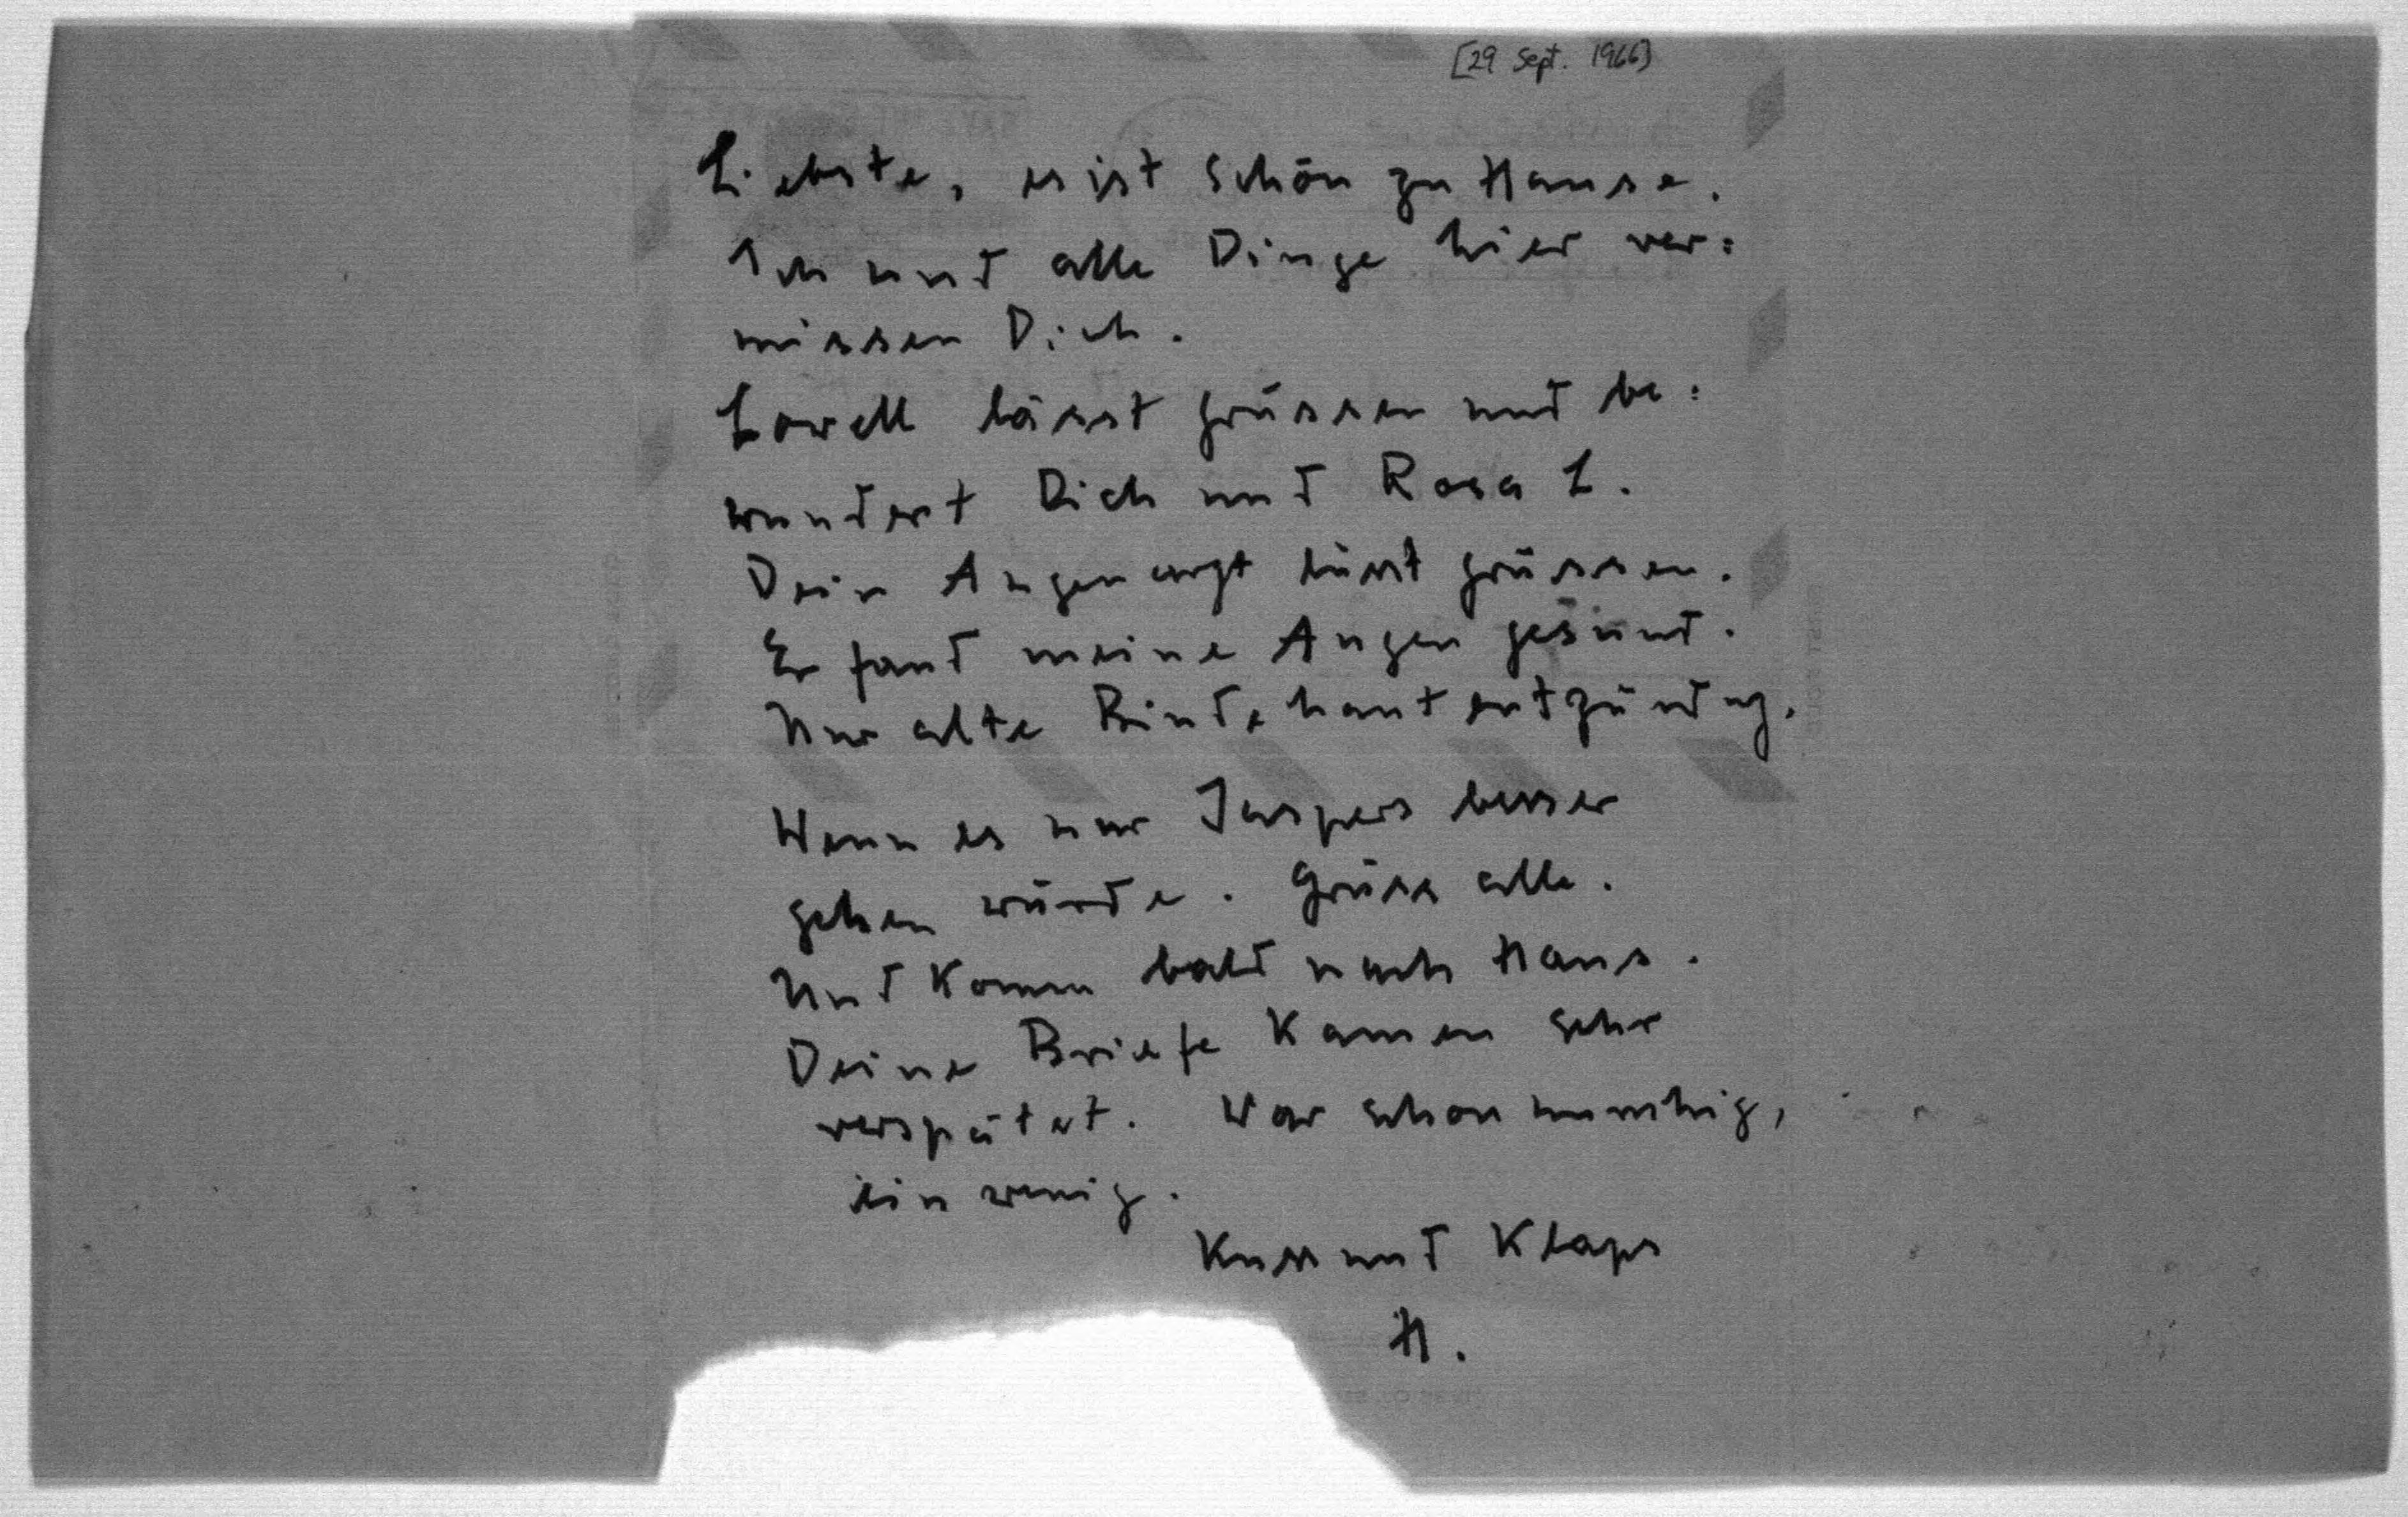 [29 Sept. 1966]
Liebste, es ist schön zu Hause.
Ich und alle Dinge hier ver=
missen Dich.
Lowell lässt grüssen und be=
wundert Dich und Rosa L.
Dein Augenarzt lässt grüssen.
Er fand meine Augen gesund.
Nur alte Bindehautentzündung.
Wenn es nur Jaspers besser
gehen würde. Grüss alle.
Und komm bald nach Haus.
Deine Briefe kamen sehr
verspätet. War schon unruhig,
ein wenig.
Kuss und Klaps
H.